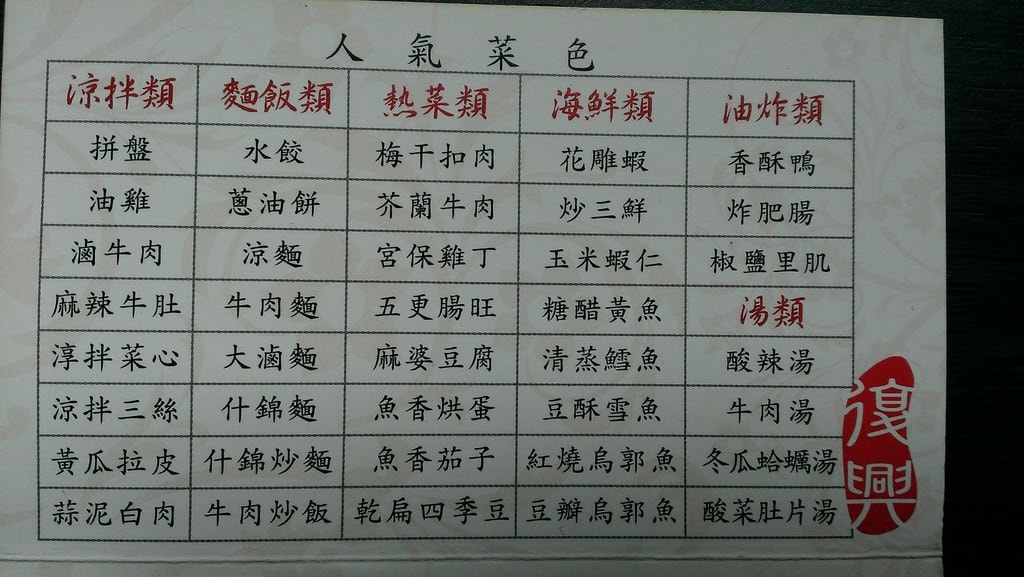 人氣菜色
涼拌類 麵飯類 熱菜類 海鮮類 油炸類
拼盤 水餃 梅干扣肉 花雕蝦 香酥鴨
油雞 蔥油餅 芥蘭牛肉 炒三鮮 炸肥腸
滷牛肉 涼麵 宮保雞丁 玉米蝦仁 椒鹽里肌
麻辣牛肚 牛肉麵 五更腸旺 糖醋黃魚 湯類
淳拌菜心 大滷麵 麻婆豆腐 清蒸鱈魚 酸辣湯
涼拌三絲 什錦麵 魚香烘蛋 豆酥雪魚 牛肉湯
黃瓜拉皮 什錦炒麵 魚香茄子 紅燒烏郭魚 冬瓜蛤蠣湯
蒜泥白肉 牛肉炒飯 乾扁四季豆 豆瓣烏郭魚 酸菜肚片湯
復興